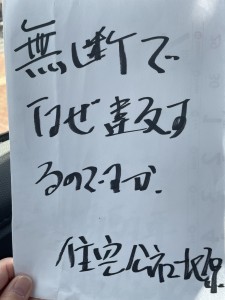 無断で
なぜ違反す
るのですか.
住宅公社